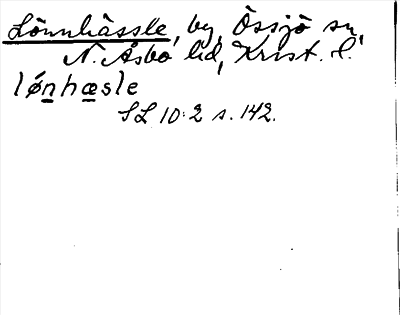 Lönnhässle, by, Össjö sn,
N. Åsbo hd, Krist. l.
lǿnhæsle
SL 10:2 s. 142.